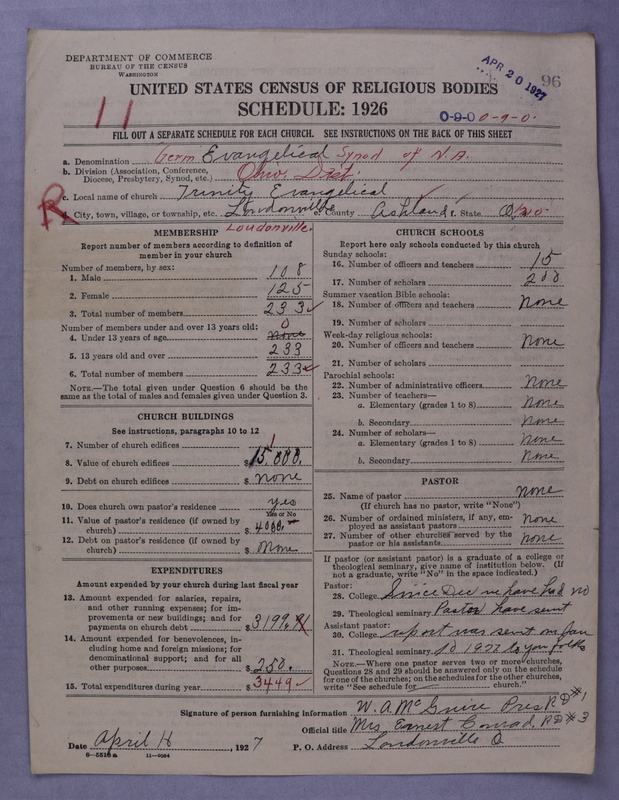 DEPARTMENT OF COMMERCE
BUREAU OF THE CENSUS
WASHINGTON
APR 20 1927
96
UNITED STATES CENSUS OF RELIGIOUS BODIES
SCHEDULE: 1926
11
0-9-0 0-9-0.
FILL OUT A SEPARATE SCHEDULE FOR EACH CHURCH. SEE INSTRUCTIONS ON THE BACK OF THIS SHEET
a. Denomination Germ Evangelical Synod of N.A.
b. Division (Association, Conference, Diocese, Presbytery, Synod, etc.) Ohio. Dist.
c. Local name of church Trinity Evangelical
R
d. City, town, village, or township, etc. Londonville e. County Ashland f. State Ohio
Loudonville.
MEMBERSHIP
Report number of members according to definition of
member in your church
Number of members, by sex:
1. Male 108
2. Female 125
3. Total number of members 233
Number of members under and over 13 years old:
4. Under 13 years of age 0 None
5. 13 years old and over 233
6. Total number of members 233
NOTE.—The total given under Question 6 should be the
same as the total of males and females given under Question 3.
CHURCH BUILDINGS
See instructions, paragraphs 10 to 12
7. Number of church edifices 1
8. Value of church edifices $15.000.
9. Debt on church edifices $ none
10. Does church own pastor's residence yes
Yes or No
11. Value of pastor's residence (if owned by
church) $ 4000.
12. Debt on pastor's residence (if owned by
church) $ None
EXPENDITURES
Amount expended by your church during last fiscal year
13. Amount expended for salaries, repairs,
and other running expenses; for im-
provements or new buildings; and for
payments on church debt $ 3199.
14. Amount expended for benevolences, in-
cluding home and foreign missions; for
denominational support; and for all
other purposes $ 250.
15. Total expenditures during year $ 3449
CHURCH SCHOOLS
Report here only schools conducted by this church
Sunday schools:
16. Number of officers and teachers 15
17. Number of scholars 200
Summer vacation Bible schools:
18. Number of officers and teachers none
19. Number of scholars
Week-day religious schools:
20. Number of officers and teachers None
21. Number of scholars
Parochial schools:
22. Number of administrative officers None
23. Number of teachers—
a. Elementary (grades 1 to 8) None
b. Secondary None
24. Number of scholars—
a. Elementary (grades 1 to 8) None
b. Secondary None
PASTOR
25. Name of pastor none
(If church has no pastor, write "None")
26. Number of ordained ministers, if any, em-
ployed as assistant pastors none
27. Number of other churches served by the
pastor or his assistants none
If pastor (or assistant pastor) is a graduate of a college or
theological seminary, give name of institution below. (If
not a graduate, write "No" in the space indicated.)
Pastor:
28. College Since Dec we have had no
29. Theological seminary Pastor have sent
Assistant pastor:
30. College report was sent on Jan
31. Theological seminary 10 1927 to you folks
NOTE.—Where one pastor serves two or more churches,
Questions 28 and 29 should be answered only on the schedule
for one of the churches; on the schedules for the other churches,
write "See schedule for church."
Signature of person furnishing information W. A. McGuire Pres RD #1
Official title Mrs Earnest Conrad, RD #3
Date April 16, 1927 P. O. Address Londonville O
6—5516a 11—9084